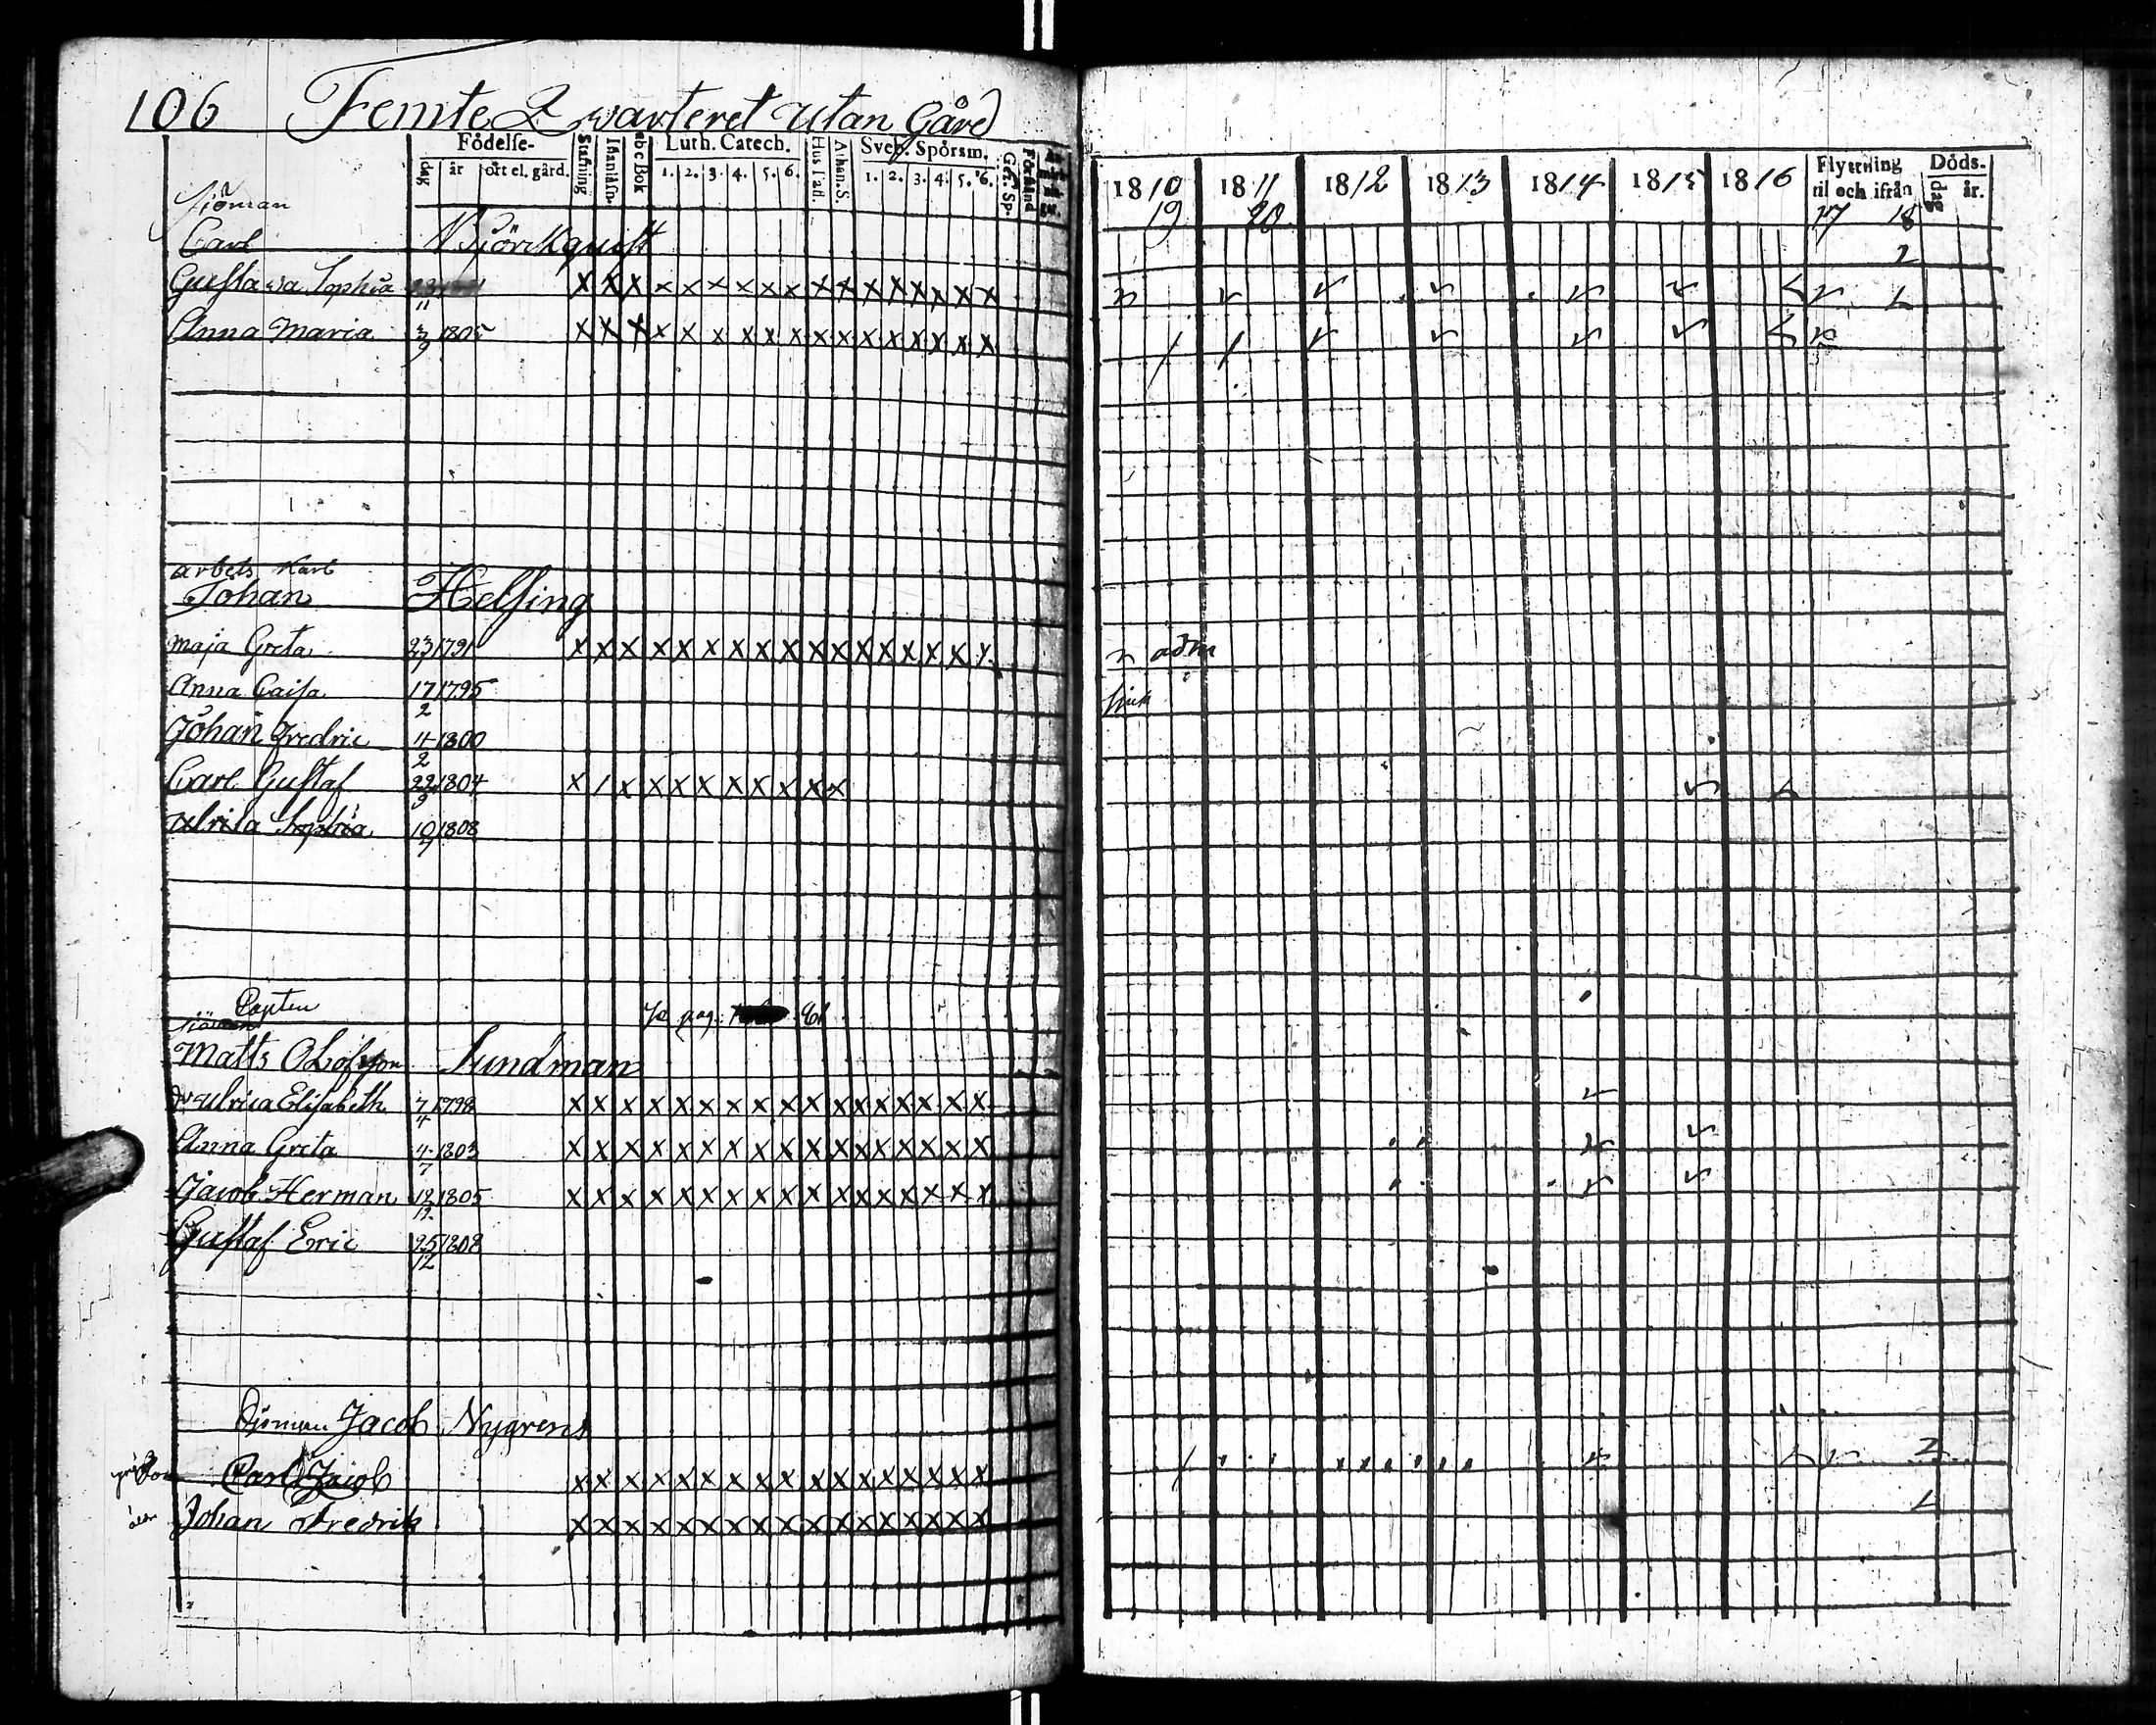 106 Femte Qwarteret utan Gård
Födelse-
dag år ort el. gård.
Stafning
Innanläsn.
abc Bok
Luth. Catech.
1. 2. 3. 4. 5. 6.
Hus Tafl.
Athan. S.
Sveb. Spörsm.
1. 2. 3. 4. 5. 6.
Förstånd
1810 1811 1812 1813 1814 1815 1816
Flyttning til och ifrån
Döds-
dag år.
19 20 17 18
Sjöman
Carl Björckquist
Gustava Sophia
11
Anna Maria 3/9 1805
arbets Karl
Johan Helsing
Maja Greta 23 1791 adm
Anna Caisa 17/2 1795
Johan Fredric 4/2 1800
Carl Gustaf 22/9 1804
Ulrica Sophia 10 1808
Capten
Sjöman
Matts Olofsson Sundman
Ulrica Elisabeth 7/4 1798
Anna Greta 4/7 1803
Jacob Herman 18/12 1805
Gustaf Eric 25/12 1808
Sjöman Jacob Nygrens
Carl Jacob
Johan Fredrik